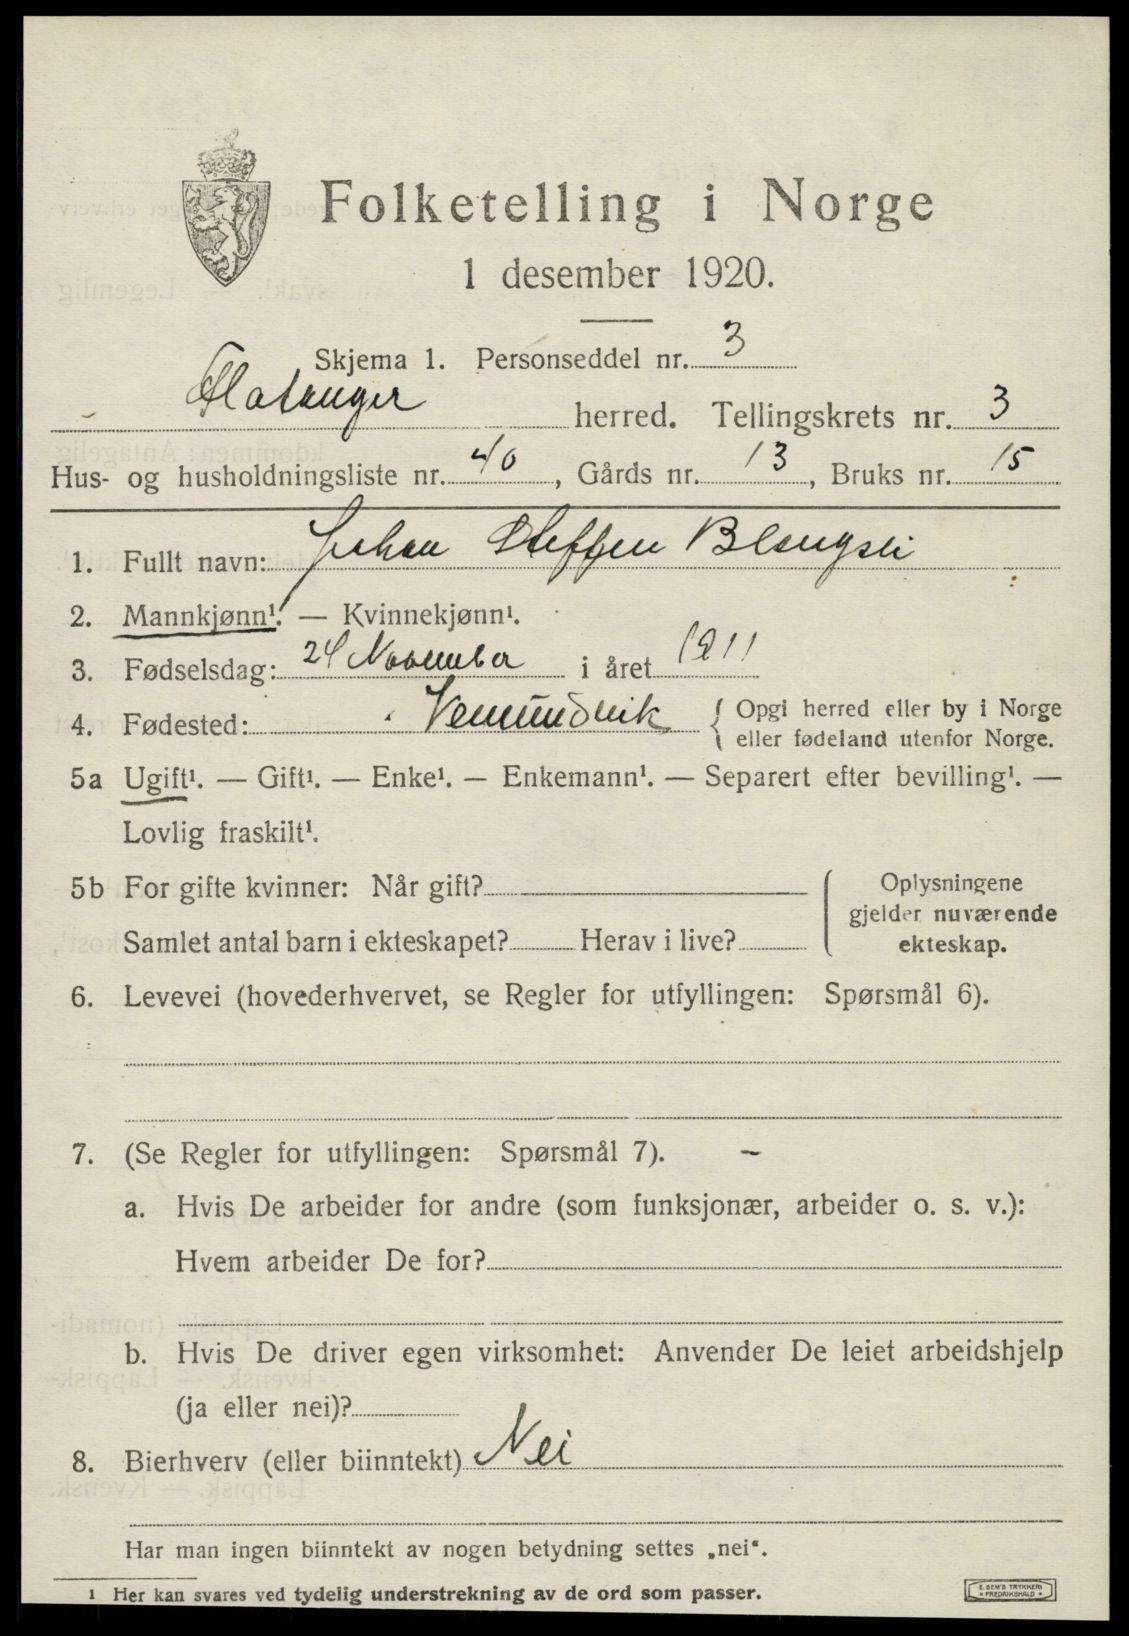 Folketelling i Norge
1 desember 1920.
Skjema 1. Personseddel nr. 3
Flatanger herred. Tellingskrets nr. 3
Hus- og husholdningsliste nr. 40, Gårds nr. 13, Bruks nr. 15
1. Fullt navn: Johan Steffen Blengsli
2. Mannkjønn¹. — Kvinnekjønn¹.
3. Fødselsdag: 24 November i året 1911
4. Fødested: Vemundvik { Opgi herred eller by i Norge
eller fødeland utenfor Norge.
5a Ugift¹. — Gift¹. — Enke¹. — Enkemann¹. — Separert efter bevilling¹. —
Lovlig fraskilt¹.
5b For gifte kvinner: Når gift?
Samlet antal barn i ekteskapet? Herav i live?
Oplysningene
gjelder nuværende
ekteskap.
6. Levevei (hovederhvervet, se Regler for utfyllingen: Spørsmål 6).
7. (Se Regler for utfyllingen: Spørsmål 7). ~
a. Hvis De arbeider for andre (som funksjonær, arbeider o. s. v.):
Hvem arbeider De for?
b. Hvis De driver egen virksomhet: Anvender De leiet arbeidshjelp
(ja eller nei)?
8. Bierhverv (eller biinntekt) Nei
Har man ingen biinntekt av nogen betydning settes „nei“.
¹ Her kan svares ved tydelig understrekning av de ord som passer.
E. SEM'S TRYKKERI
• FREDRIKSHALD •